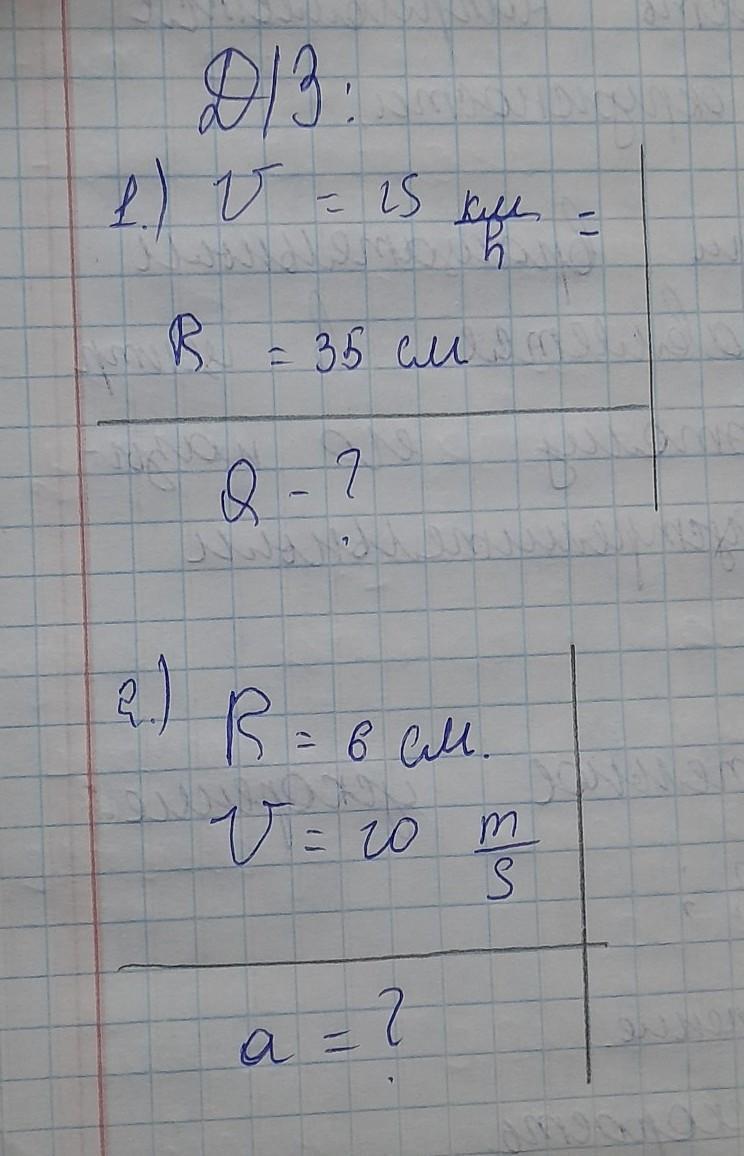 Д/З:
1.) V = 25 км/h =
R = 35 см
Q - ?
2.) R = 6 см.
V = 20 m/s
a = ?